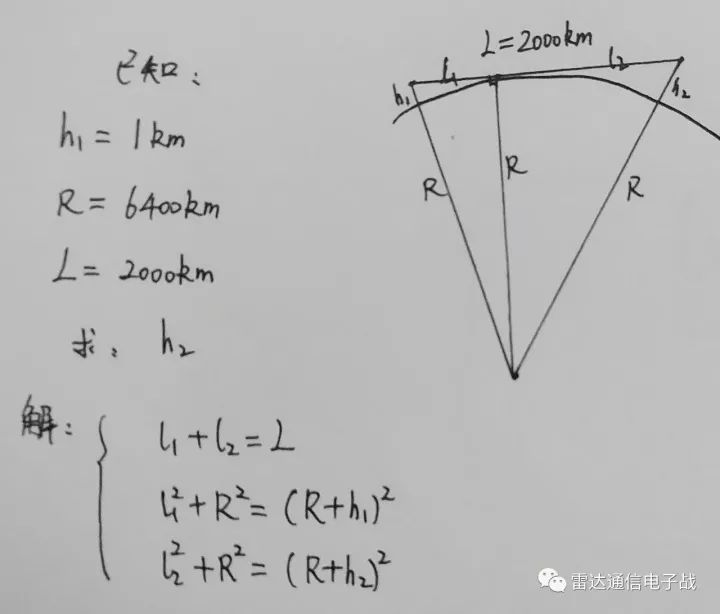 已知:
h₁ = 1km
R = 6400km
L = 2000km
求: h₂
解:
l₁ + l₂ = L
l₁² + R² = (R+h₁)²
l₂² + R² = (R+h₂)²
L = 2000km
l₁
l₂
h₁
h₂
R
R
R
雷达通信电子战